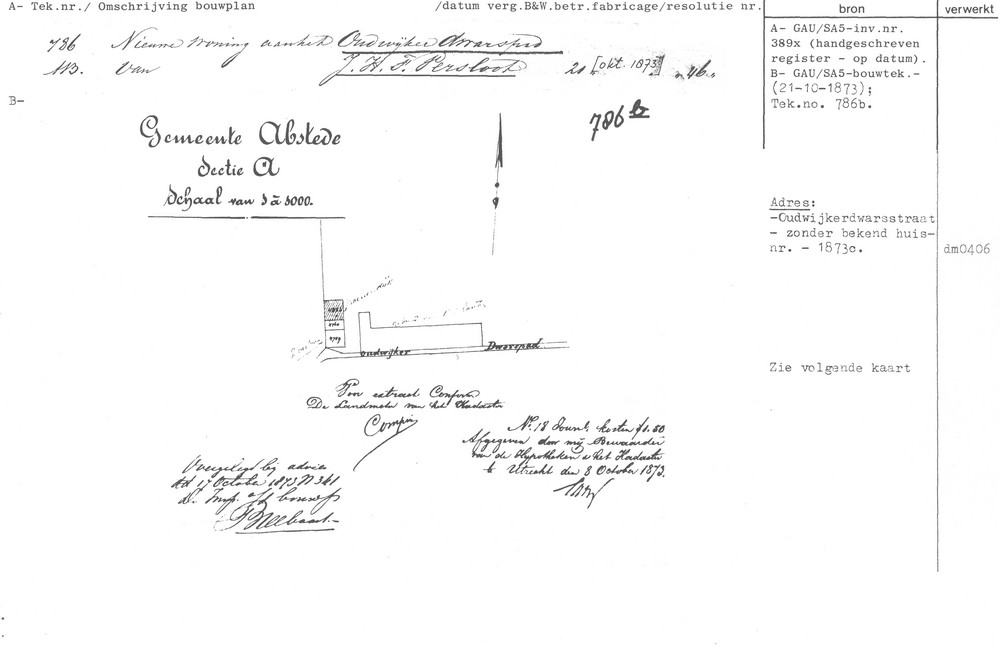 A- Tek.nr./ Omschrijving bouwplan /datum verg.B&W.betr.fabricage/resolutie nr.
bron
verwerkt
786 Nieuwe woning aan het Oudwijker dwarspad
AB. van J. H. F. Persloot 21 [okt. 1873] "46"
A- GAU/SA5-inv.nr.
389x (handgeschreven
register - op datum).
B- GAU/SA5-bouwtek.-
(21-10-1873);
Tek.no. 786b.
B-
786 b
Gemeente Abstede
Sectie A
Schaal van 1 à 1000.
Adres:
-Oudwijkerdwarsstraat
- zonder bekend huis-
nr. - 1873c.
dm0406
oudwijker Dwarspad
Zie volgende kaart
Voor extract Conform
De Landmeter van het Kadaster
No. 18 Journl. kosten f1.50
Afgegeven door mij Bewaarder
van de Hypotheken & het Kadaster
te Utrecht den 8 October 1873.
Overgelegd bij advies
dd 17 October 1873 N 341